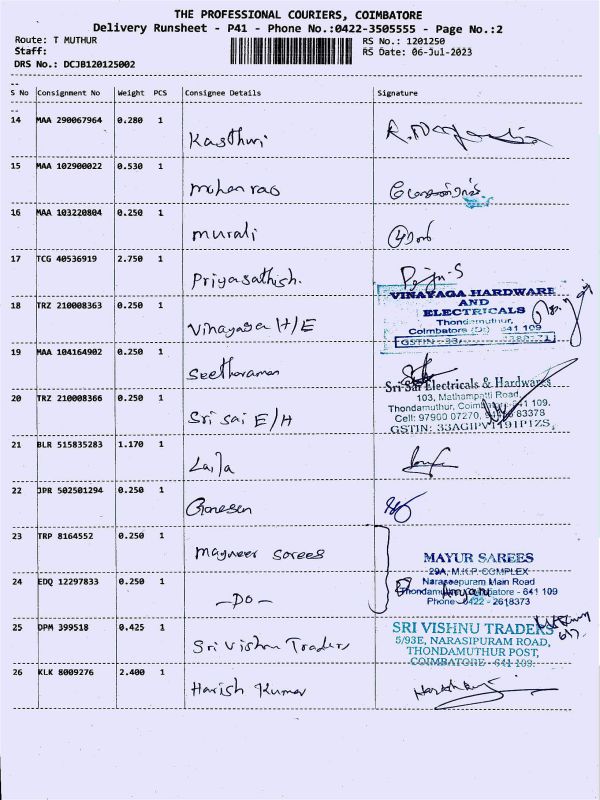 THE PROFESSIONAL COURIERS, COIMBATORE
Delivery Runsheet - P41 - Phone No.:0422-3505555 - Page No.:2
Route: T MUTHUR
RS No.: 1201250
Staff:
RS Date: 06-Jul-2023
DRS No.: DCJB120125002
S No Consignment No Weight PCS Consignee Details Signature
14 MAA 290067964 0.280 1
Kasthuri
15 MAA 102900022 0.530 1
mohan rao
16 MAA 103220804 0.250 1
murali
17 TCG 40536919 2.750 1
Priyasathish.
VINAYAGA HARDWARE
AND
18 TRZ 210008363 0.250 1
ELECTRICALS
Thondamuthur,
Vinayaga H/E
Coimbatore (Dt) 641 109
GSTIN: 33
19 MAA 104164902 0.250 1
Seetharaman
Sri Sai Electricals & Hardwares
20 TRZ 210008366 0.250 1
103, Mathampatti Road,
Thondamuthur, Coimbatore 641 109.
Sri Sai E/H
Cell: 97900 07270, 83378
GSTIN: 33AGIPV1191P1ZS,
21 BLR 515835283 1.170 1
Laila
22 JPR 502501294 0.250 1
Ganesan
23 TRP 8164552 0.250 1
mayueer sarees
MAYUR SAREES
29A, M.K.P. COMPLEX
24 EDQ 12297833 0.250 1
Naraseepuram Main Road
Thondamuthur, Coimbatore - 641 109
- DO -
Phone 0422 - 2618373
25 DPM 399518 0.425 1
SRI VISHNU TRADERS
5/93E, NARASIPURAM ROAD,
Sri Vishnu Traders
THONDAMUTHUR POST,
COIMBATORE - 641 109.
26 KLK 8009276 2.400 1
Harish Kumar